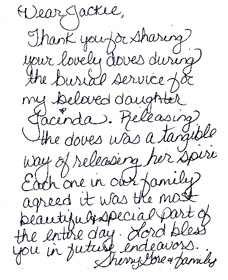 Dear Jackie,
Thank you for sharing
your lovely doves during
the burial service for
my beloved daughter
Jacinda. Releasing
the doves was a tangible
way of releasing her Spiri
Each one in our family
agreed it was the most
beautiful & special part of
the entire day. Lord bless
you in future endeavors.
Sherry Gore & family